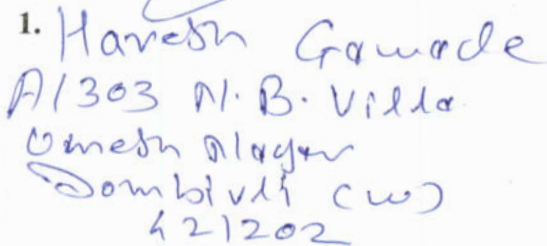 1. Haresh Gawade
A/303 N.B. Villa
Umesh Nagar
Dombivli (W)
421202